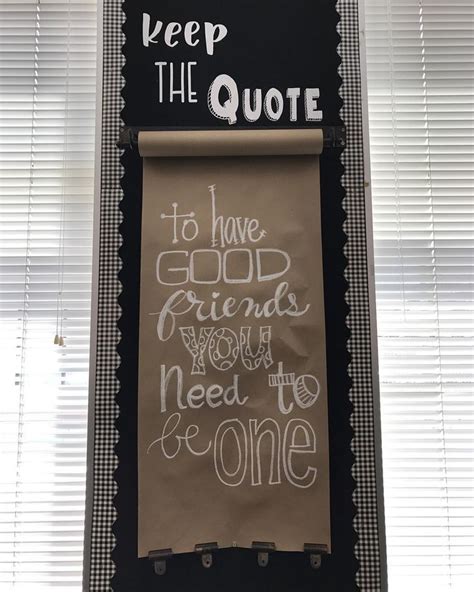 keep
THE QUOTE
to have
GOOD
friends
YOU
Need to
be ONE